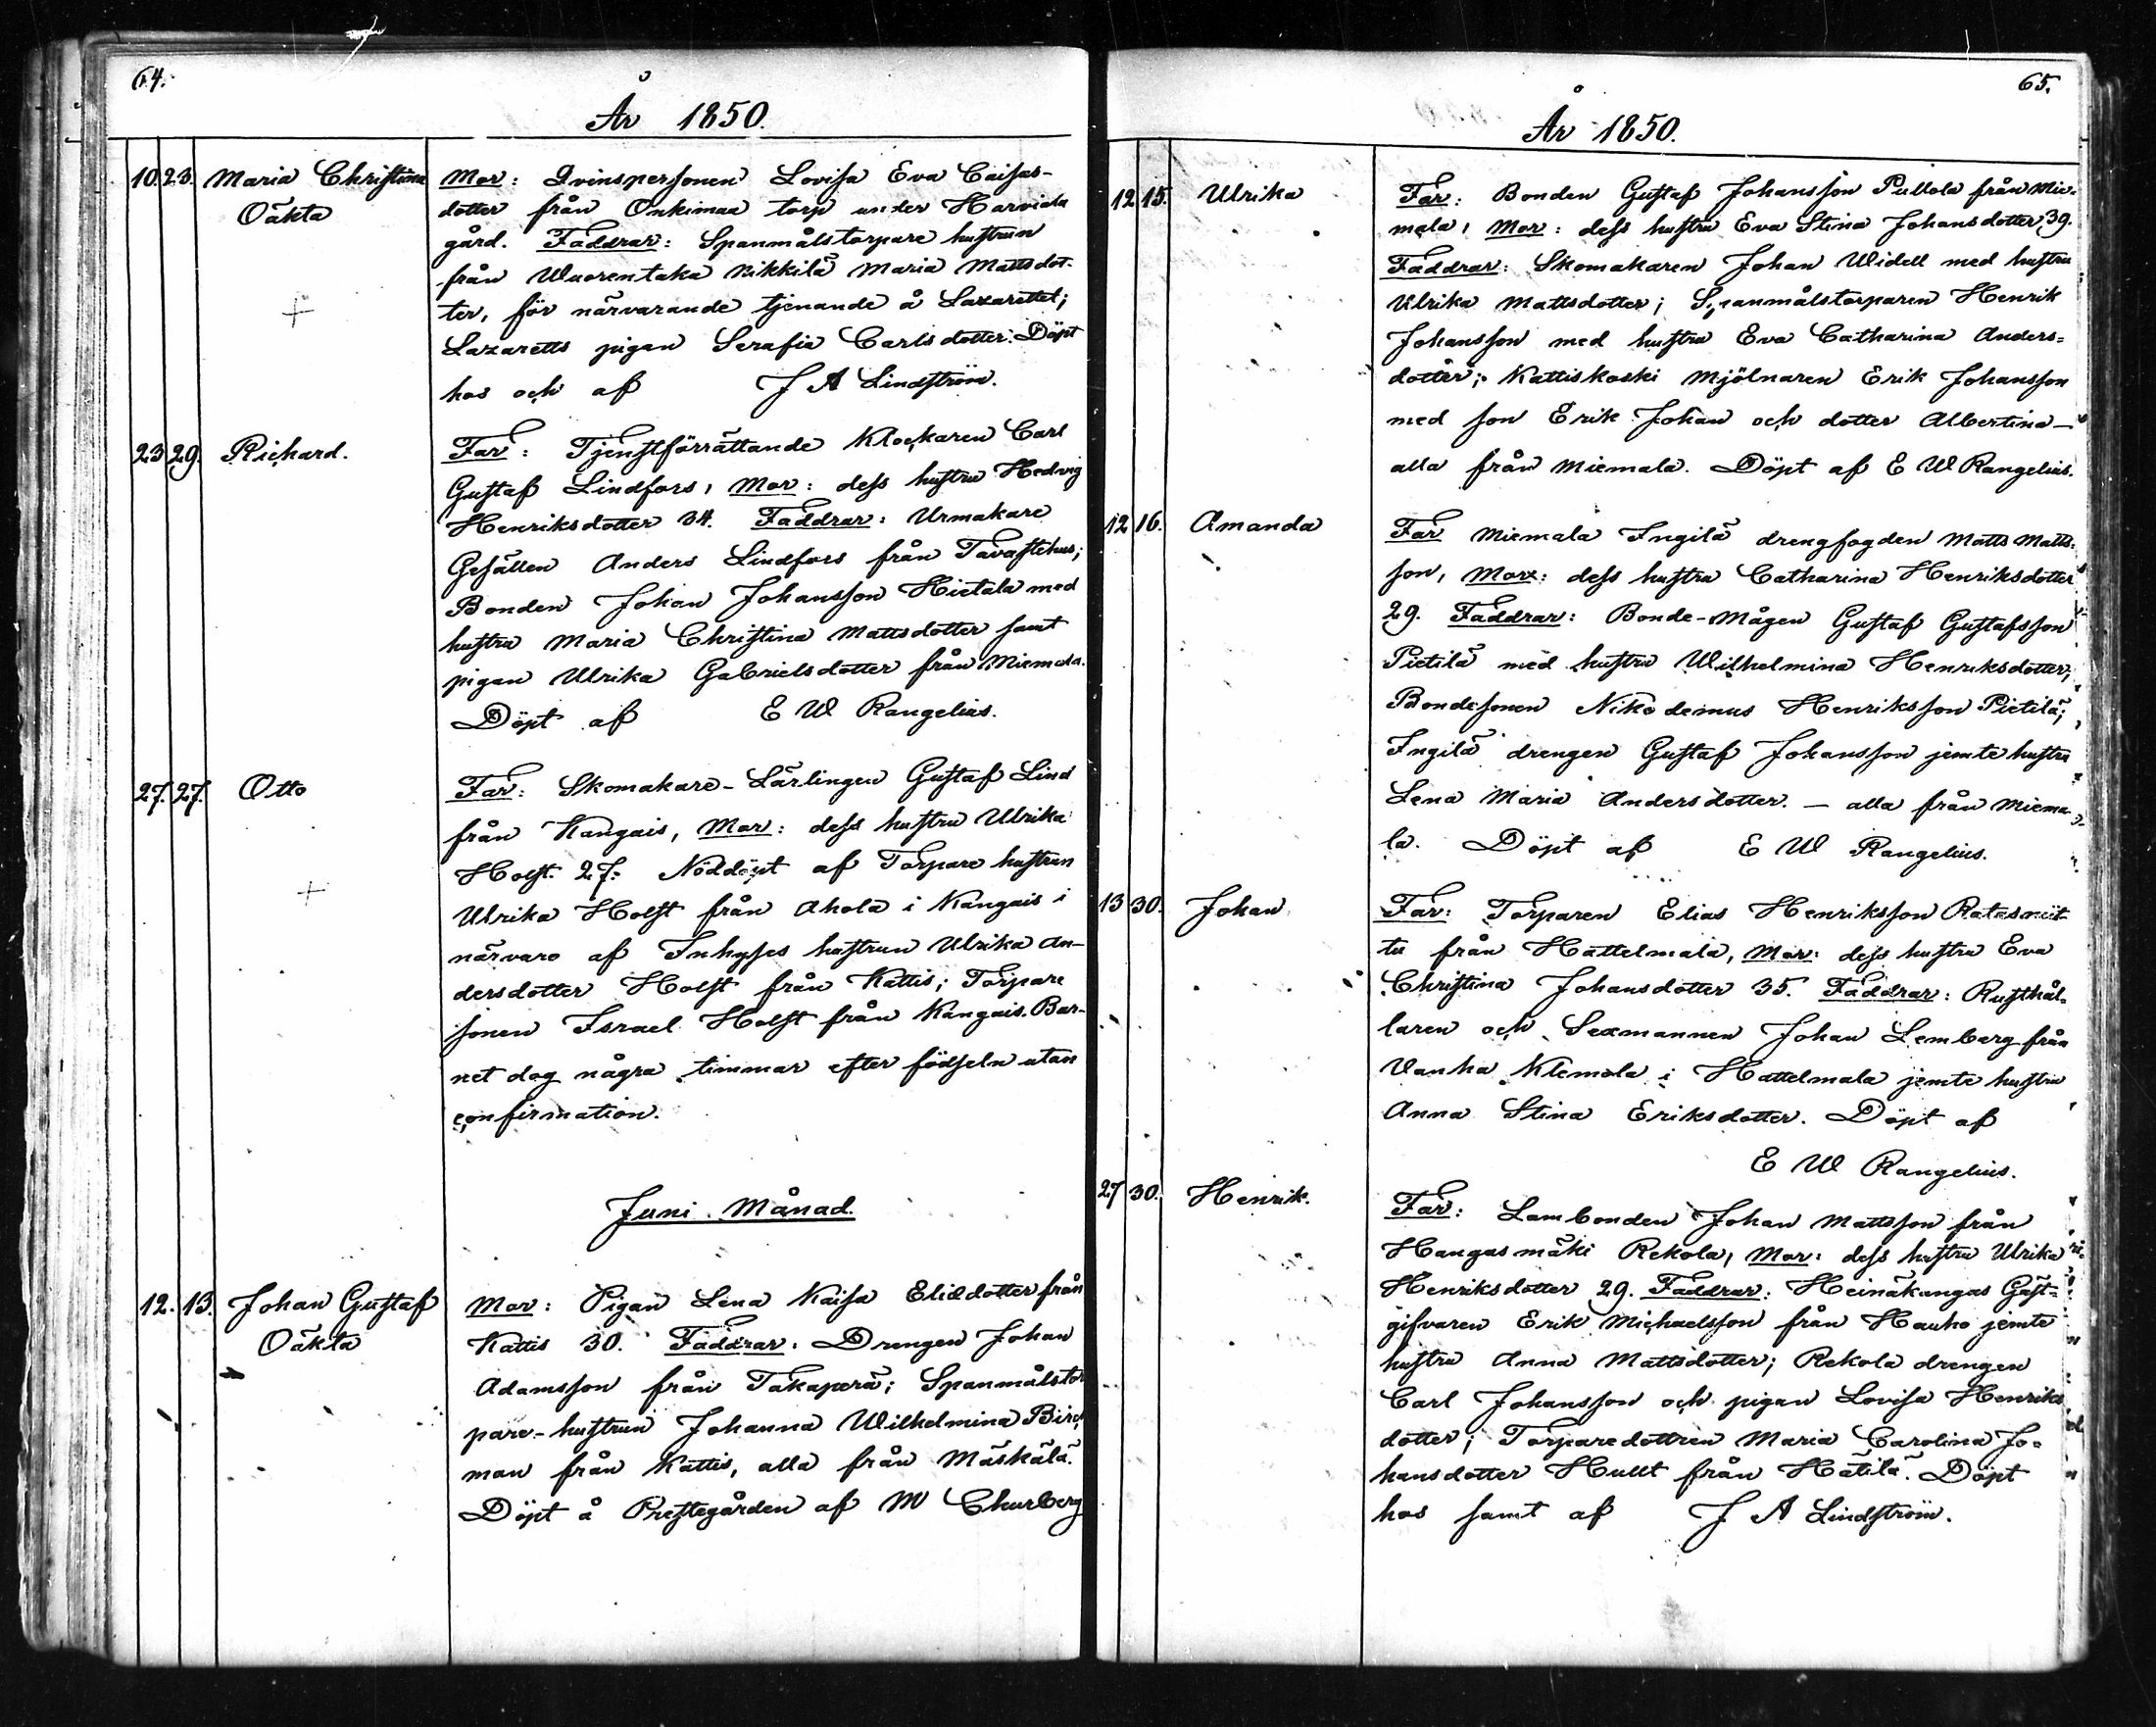 64.
År 1850.
10. 23. Maria Christina Mor: Qvinspersonen Lovisa Eva Caisas-
Oäkta dotter från Onkimaa torp under Harviala
gård. Faddrar: Spanmålstorpare hustrun
från Wuorentaka Nikkilä Maria Mattsdot-
ter, för närvarande tjenande å Lazarettet;
Lazaretts pigan Serafia Carlsdotter. Döpt
hos och af J A Lindström.
23 29. Richard. Far: Tjenstförrättande Klockaren Carl
Gustaf Lindfors, Mor: dess hustru Hedvig
Henriksdotter 34. Faddrar: Urmakare
Gesällen Anders Lindfors från Tavastehus;
Bonden Johan Johansson Hietala med
hustru Maria Christina Mattsdotter samt
pigan Ulrika Gabrielsdotter från Miemala.
Döpt af E W Rangelius.
27. 27. Otto Far: Skomakare-Lärlingen Gustaf Lind
från Kangais, Mor: dess hustru Ulrika
Holst. 27. Nöddöpt af Torpare hustrun
Ulrika Holst från Ahola i Kangais i
närvaro af Inhyses hustrun Ulrika An-
dersdotter Holst från Kattis; Torpare
sonen Israel Holst från Kangais. Bar-
net dog några timmar efter födseln utan
confirmation.
Juni Månad.
12. 13. Johan Gustaf Mor: Pigan Lena Kaisa Eliædotter från
Oäkta Kattis 30. Faddrar: Drengen Johan
Adamsson från Takaperä; Spanmålstor
pare-hustrun Johanna Wilhelmina Birck
man från Kattis, alla från Mäskälä.
Döpt å Prestegården af M Churberg
65.
År 1850.
12 15. Ulrika Far: Bonden Gustaf Johansson Pullola från Mie-
mala, Mor: dess hustru Eva Stina Johansdotter, 39.
Faddrar: Skomakaren Johan Widell med hustru
Ulrika Mattsdotter; Spanmålstorparen Henrik
Johansson med hustru Eva Catharina Anders=
dotter; Kattiskoski Mjölnaren Erik Johansson
med son Erik Johan och dotter Albertina —
alla från Miemala. Döpt af E W Rangelius.
12 16. Amanda Far Miemala Ingilä drengfogden Matts Matts-
son, Mor: dess hustru Catharina Henriksdotter
29. Faddrar: Bonde-Mågen Gustaf Gustafsson
Pietilä med hustru Wilhelmina Henriksdotter;
Bondesonen Nikodemus Henriksson Pietilä;
Ingilä drengen Gustaf Johansson jemte hustru
Lena Maria Andersdotter. — alla från Miema-
la. Döpt af E W Rangelius.
13 30. Johan Far: Torparen Elias Henriksson Ratasniit
tu från Hattelmala, Mor: dess hustru Eva
Christina Johansdotter 35. Faddrar: Rusthål-
laren och Sexmannen Johan Lemberg från
Vanha Klemola i Hattelmala jemte hustru
Anna Stina Eriksdotter. Döpt af
E W Rangelius.
27 30. Henrik. Far: Lambonden Johan Mattsson från
Hangasmäki Rekola, Mor: dess hustru Ulrika
Henriksdotter 29. Faddrar: Heinäkangas Gäst=
gifvaren Erik Michaelsson från Hauho jemte
hustru Anna Mattsdotter; Rekola drengen
Carl Johansson och pigan Lovisa Henriks
dotter; Torparedottren Maria Carolina Jo=
hansdotter Hullt från Hätilä. Döpt
hos samt af J A Lindström.